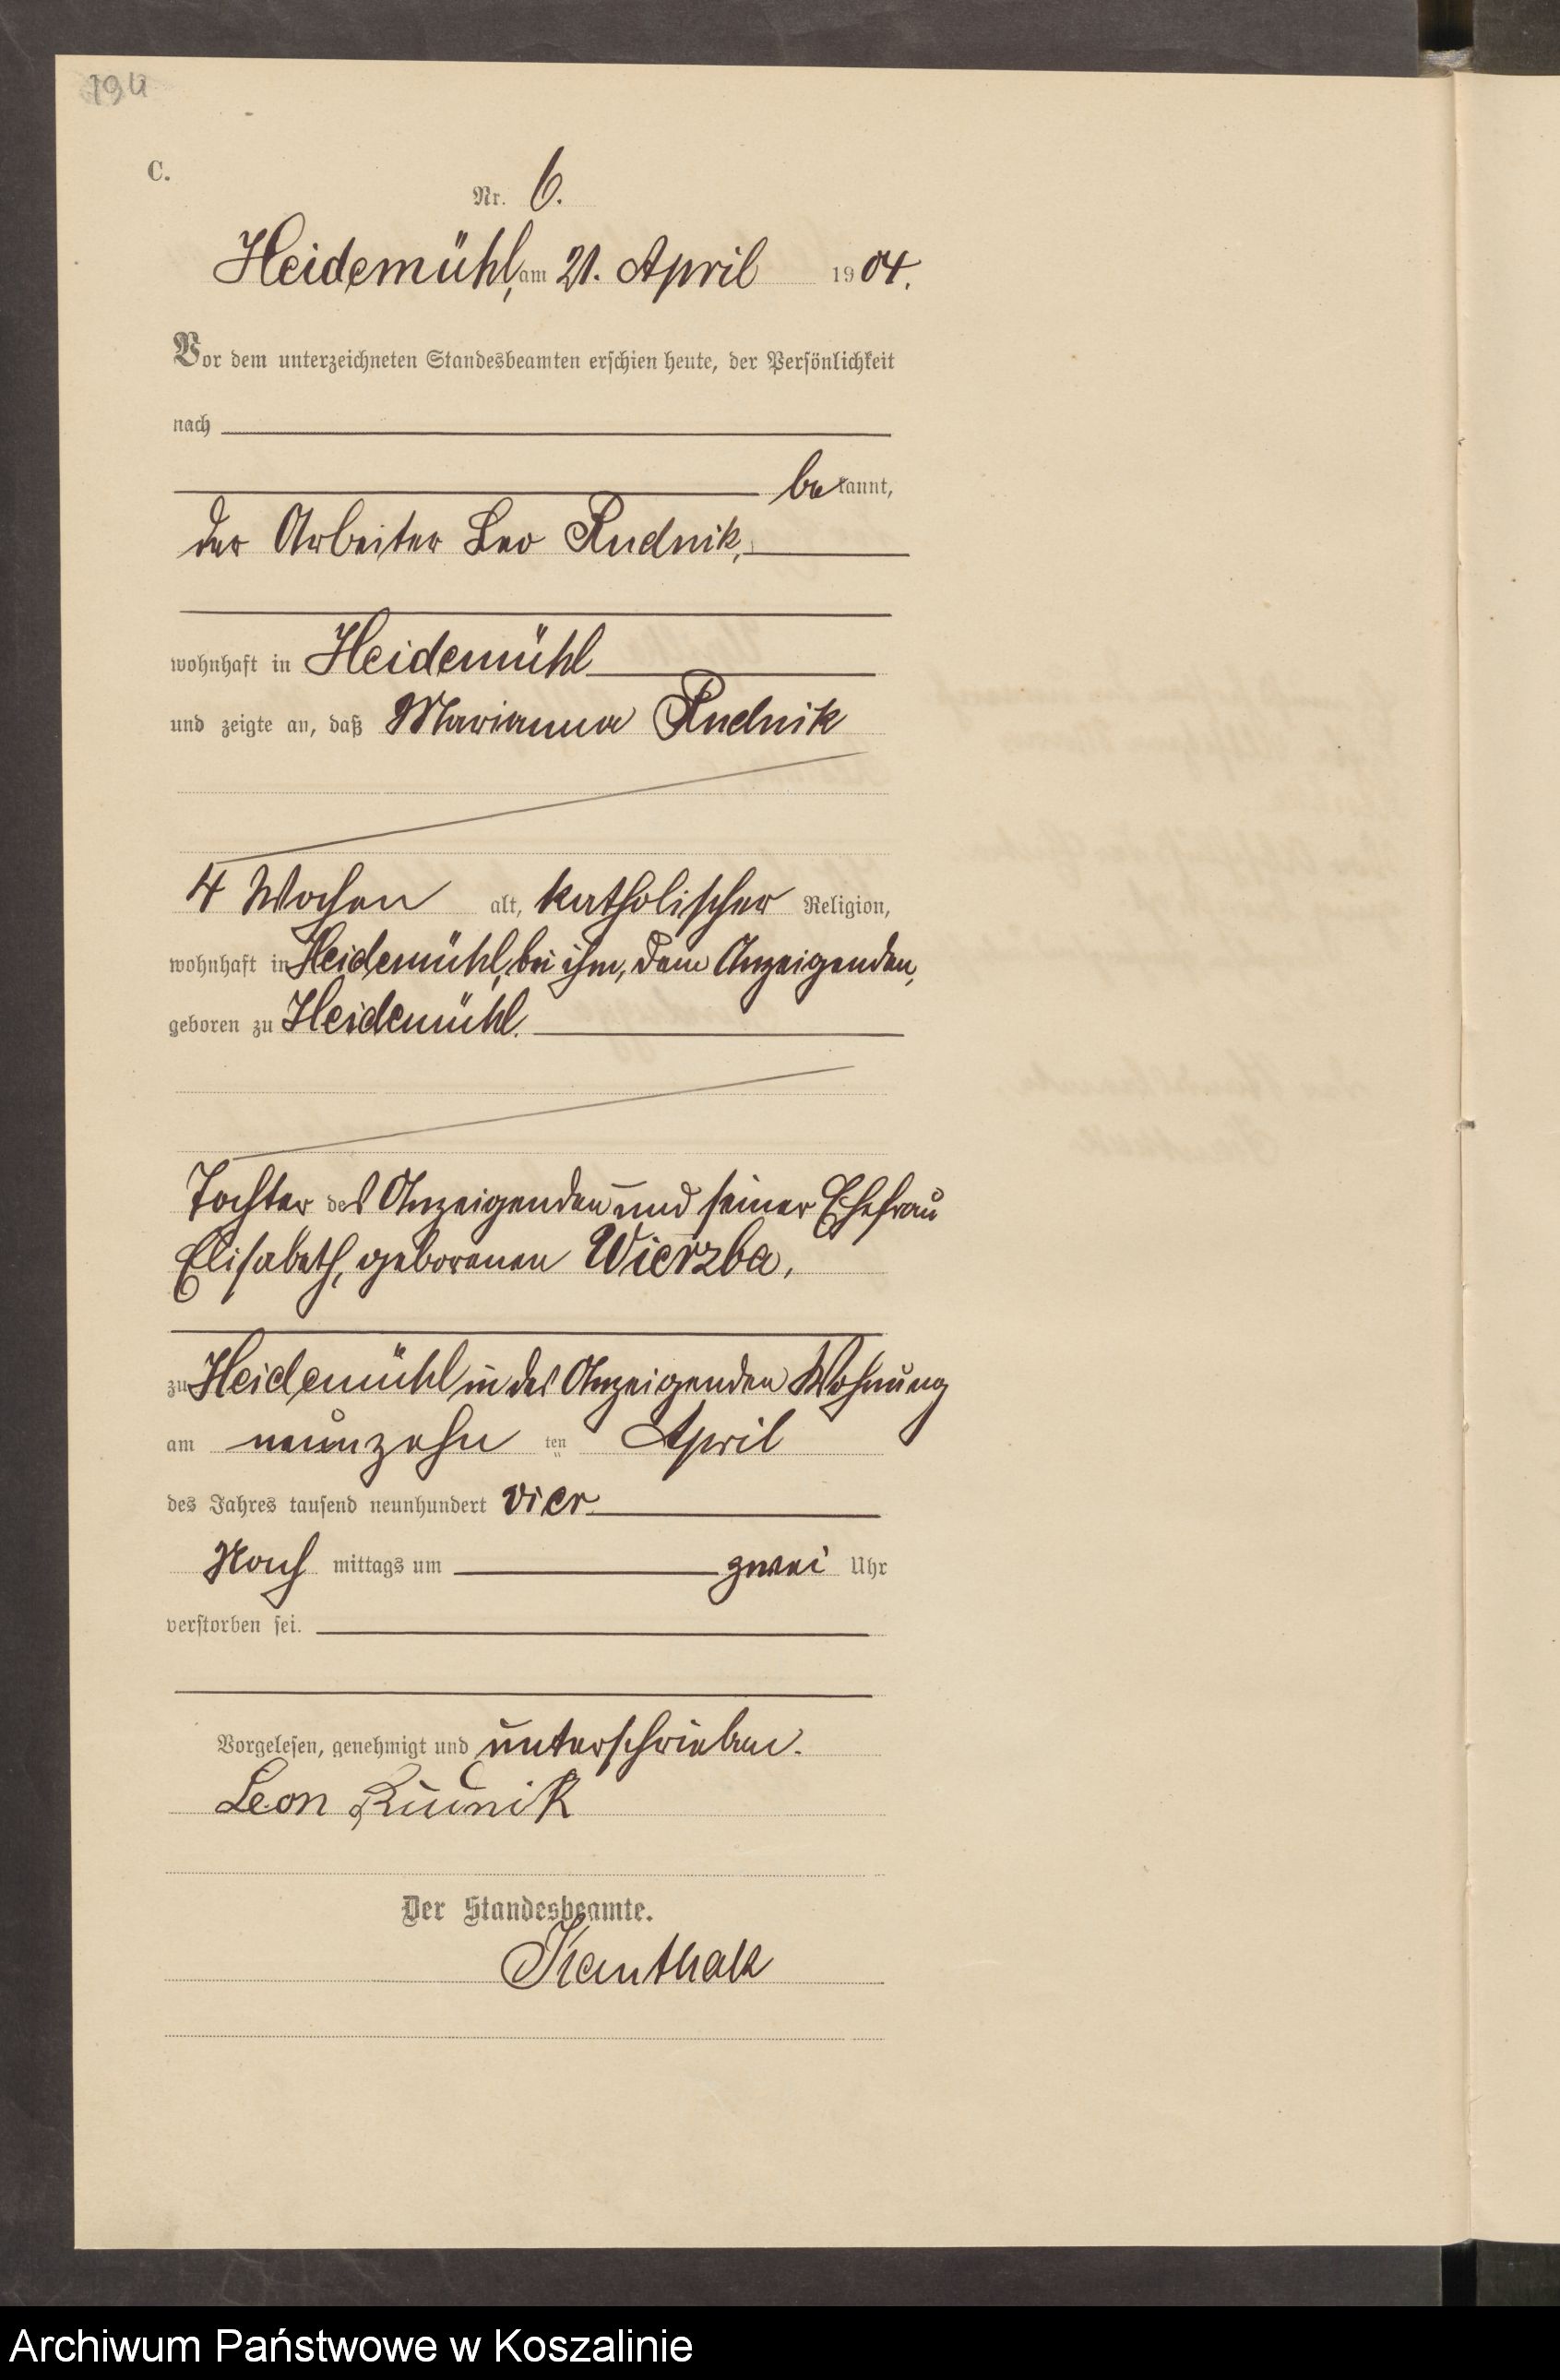 194
C.
Nr. 6.
Heidemühl, am 21. April 1904.
Vor dem unterzeichneten Standesbeamten erschien heute, der Persönlichkeit
nach
bekannt,
der Arbeiter Leo Rudnik,
wohnhaft in Heidemühl
und zeigte an, daß Marianna Rudnik
4 Wochen alt, katholischer Religion,
wohnhaft in Heidemühl, bei ihm, dem Anzeigenden,
geboren zu Heidemühl.
Tochter des Anzeigenden und seiner Ehefrau
Elisabeth, geborenen Wierzba,
zu Heidemühl in des Anzeigenden Wohnung
am neunzehn ten April
des Jahres tausend neunhundert vier
Nach mittags um zwei Uhr
verstorben sei.
Vorgelesen, genehmigt und unterschrieben.
Leon Rudnik
Der Standesbeamte.
Kanthak
Archiwum Państwowe w Koszalinie